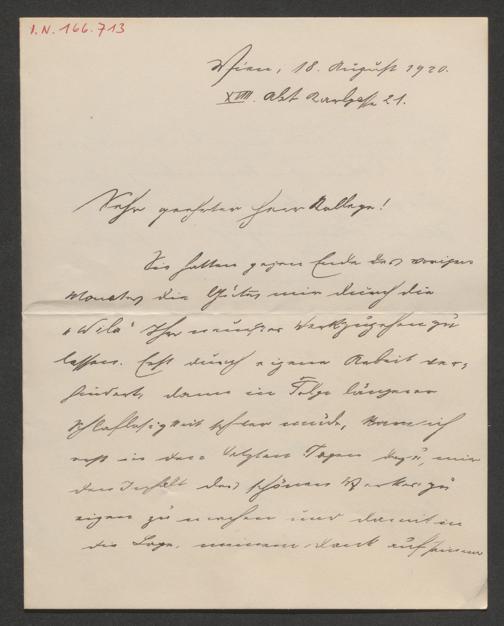 I.N. 166.713
Wien, 18. August 1920.
XVIII. Abt Karlgasse 21.
Sehr geehrter Herr Kollege!
Sie hatten gegen Ende des vorigen
Monates die Güte, mir durch die
"Wila" Ihr neuestes Werk zugehen zu
lassen. Erst durch eigene Arbeit ver-
hindert, dann in Folge längerer
Schlaflosigkeit sehr müde, kam ich
erst in den letzten Tagen dazu, mir
den Inhalt des schönen Werkes zu
eigen zu machen und damit in
die Lage, meinen Dank